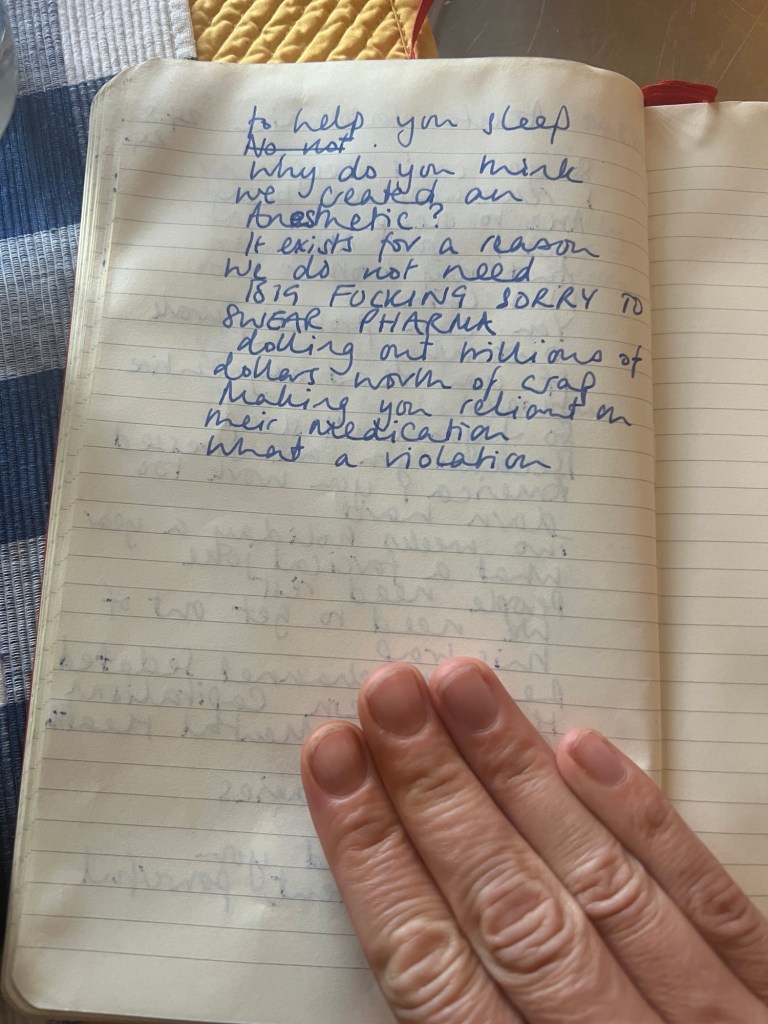 to help you sleep
No not
Why do you think
we created an
Anesthetic?
It exists for a reason
We do not need
BIG FUCKING SORRY TO
SWEAR PHARMA
dolling out millions of
dollars worth of crap
Making you reliant on
their medication
What a violation